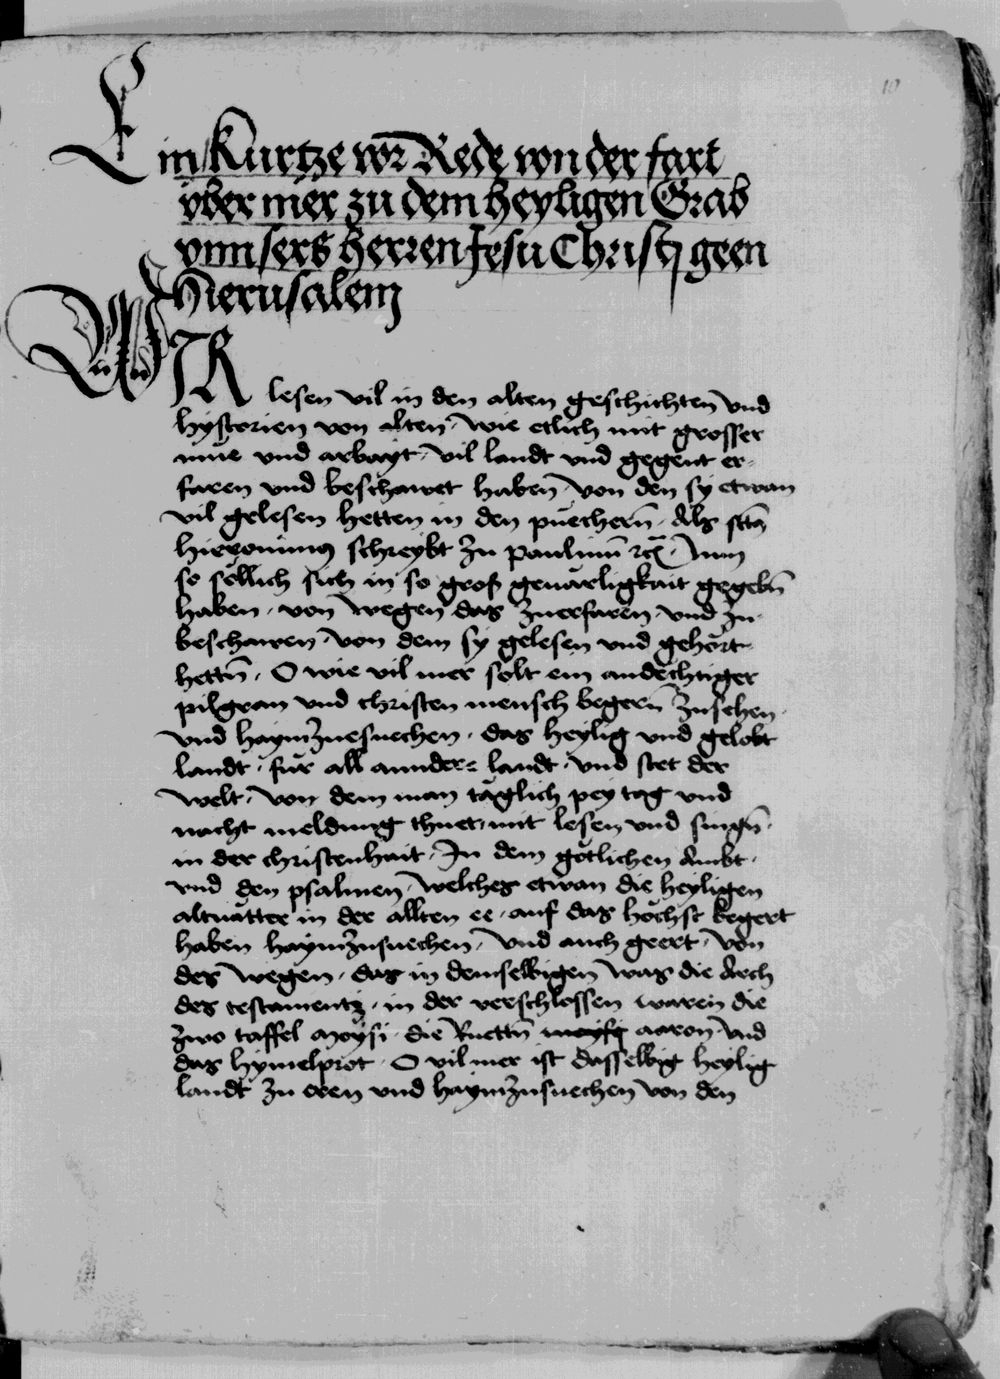 10
Ein kurtze vor Rede von der fart
vber mer zu dem heyligen Grab
vnnsers herren Jesu Christj geen
Hierusalem
WIR lesen vil in den alten geschichten vnd
hystorien von alten, wie etlich mit grosser
müe vnd arbayt, vil landt vnd gegent er-
faren vnd beschawet haben, von den sy etwan
vil gelesen hetten in den püechern̄. Als sctō
hieronimus schreybt zu paulinū rc̄. Nun
so söllich sich in so groß geuärligkait gegebn̄
haben, von wegen das zuerfaren, vnd zu
beschawen, von dem sy gelesen vnd gehört
hettn̄, O wie vil mer solt ein andechtiger
pilgram vnd christen mensch begern̄ zusehen,
vnd haymzuesuechen, das heylig vnd gelobt
landt, für all annder landt, vnd stet der
welt, von dem man täglich pey tag vnd
nacht meldung thuet, mit lesen vnd singn̄,
in der christenhait, In dem götlichen Ambt,
vnd den psalmen, welches etwan die heyligen
altuätter in der allten ee, auf das höchst begert
haben haymzusuechen, vnd auch geert, von
des wegen, das in demselbigen was die Arch
des testamentz, in der verschlossen waren die
zwo taffel moysi, die Ruettn̄ moysy aaron vnd
das hymelprot, O vil mer ist dasselbig heylig
landt zu eren vnd haymzusuechen von den